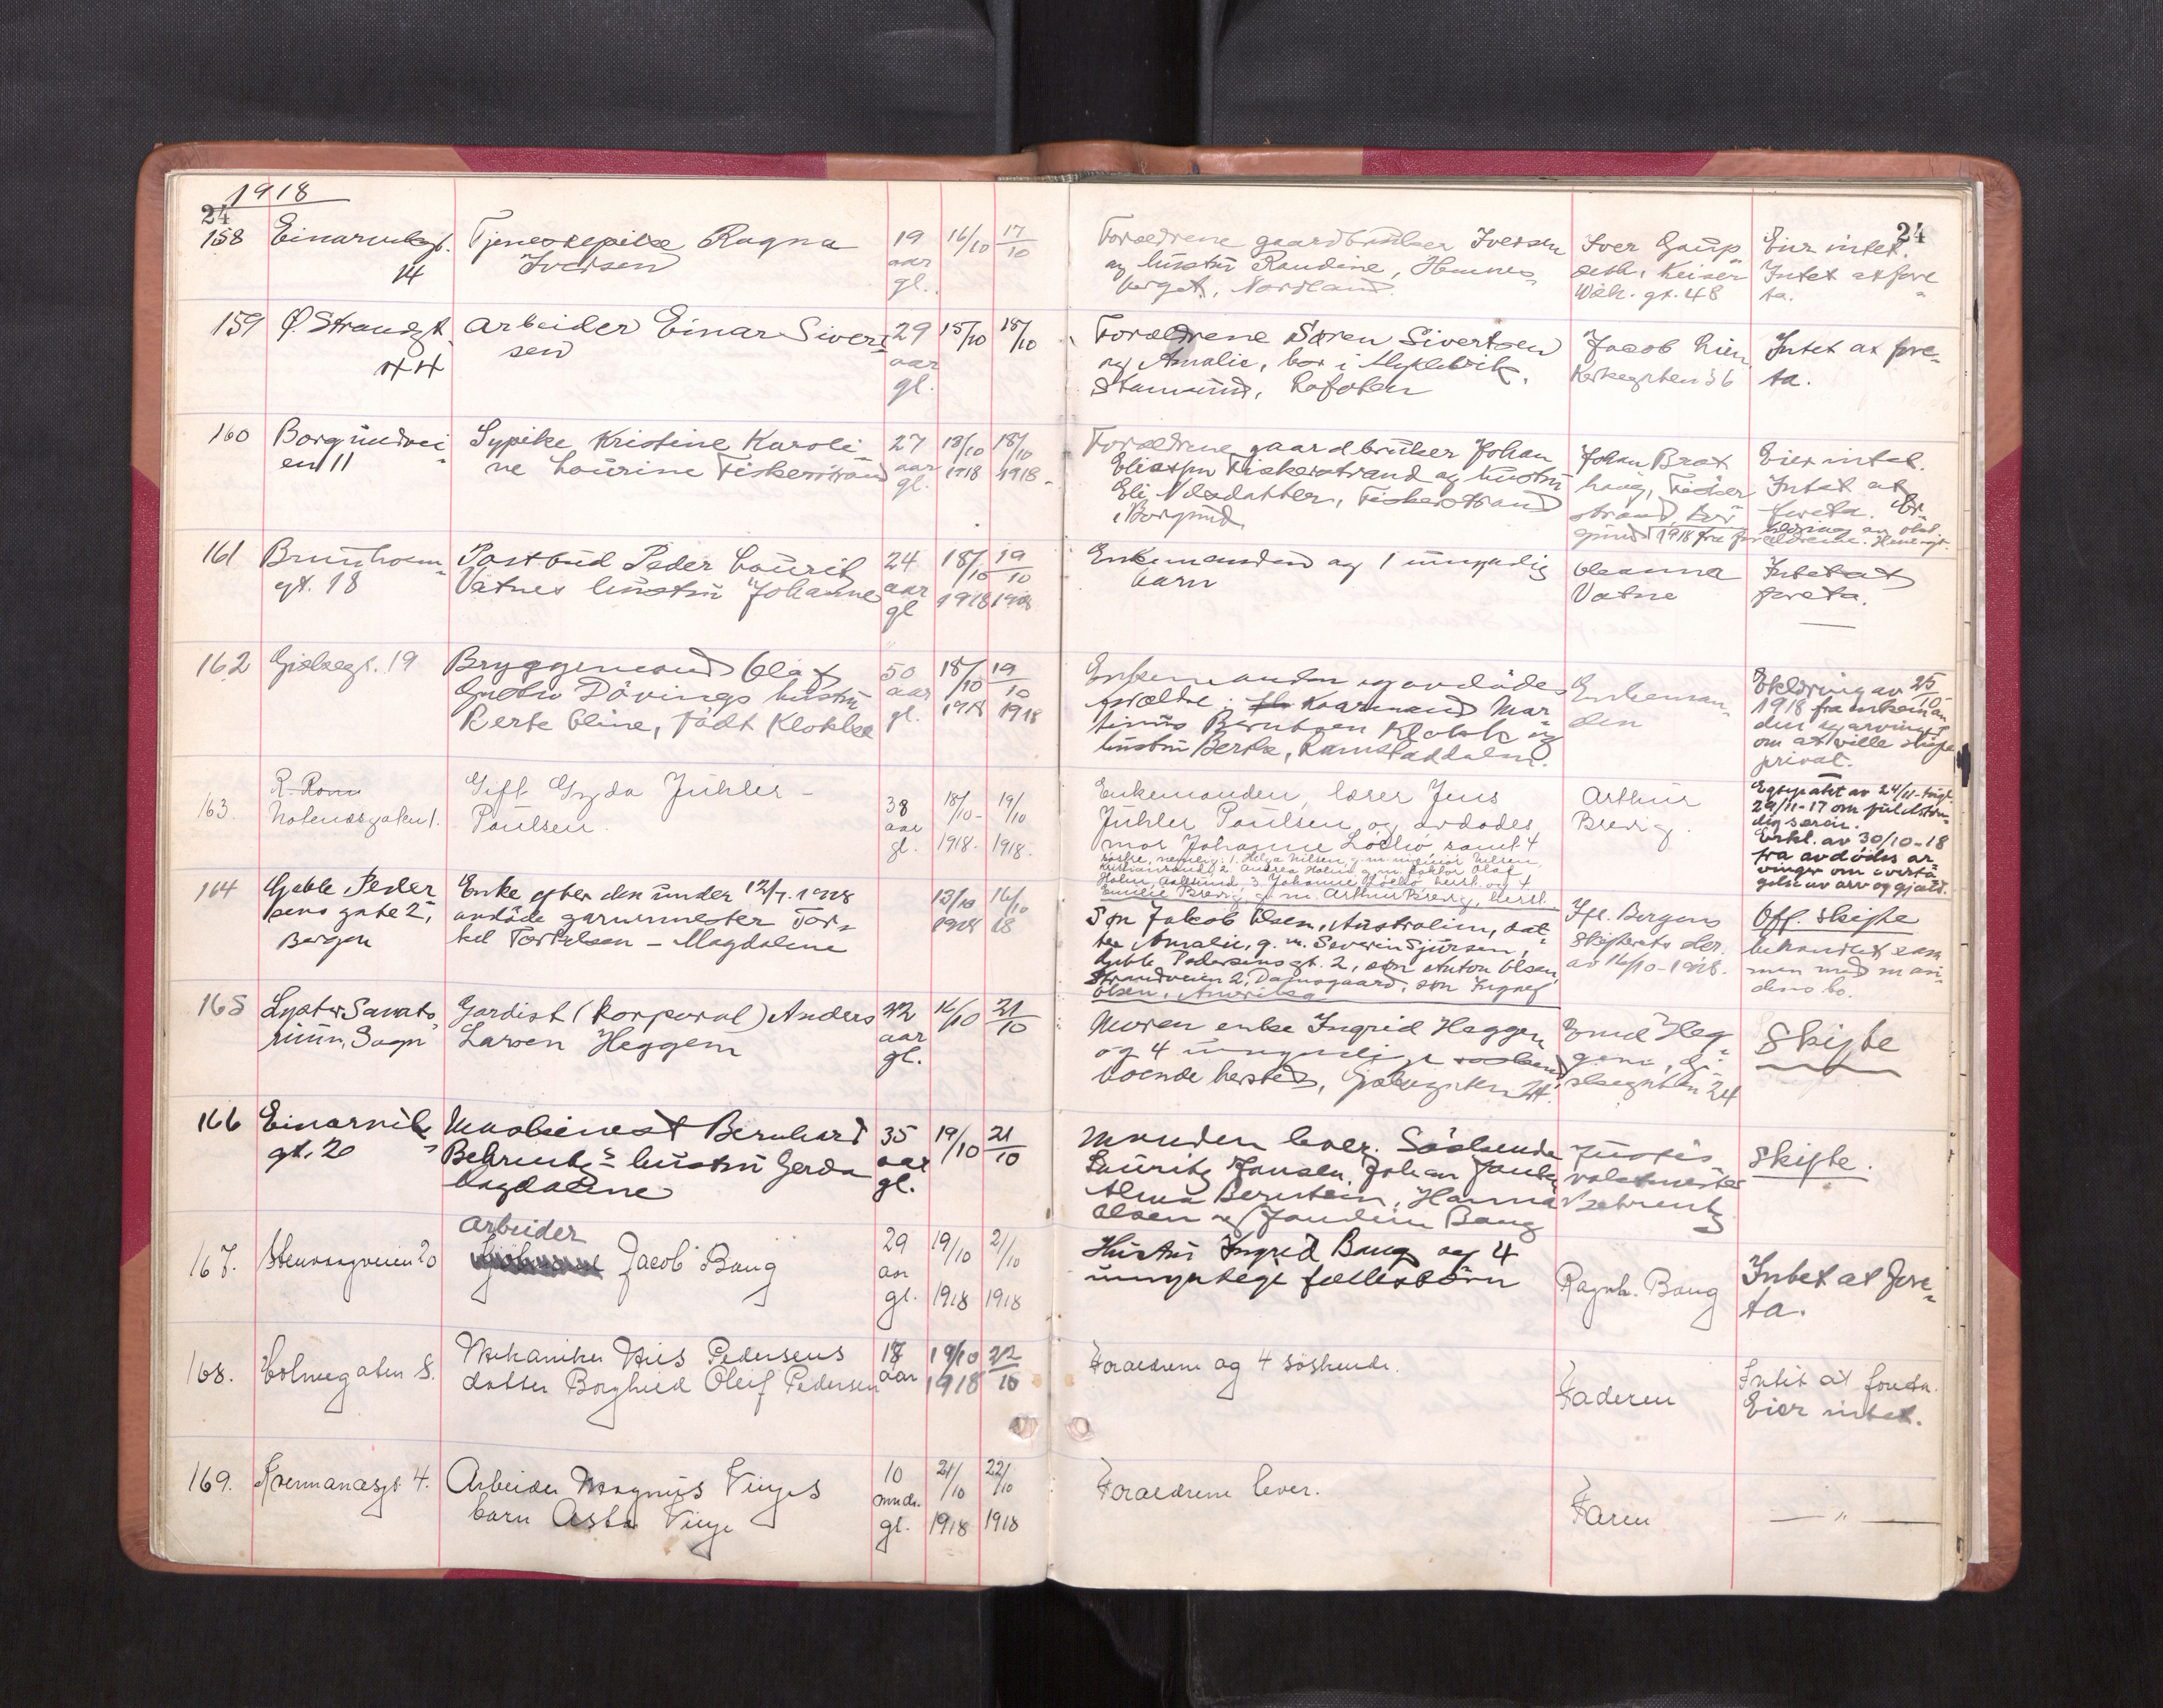 1918
24
24
158
Einarvikgt.
14
Tjenestepike Ragna
Iversen
19
aar
gl.
16/10
17/10
Forældrene gaardbruker Iversen
og hustru Raudine, Hemnes-
berget, Nordland.
Iver Gaup
seth, Keiser
Wilh. gt. 48
Eier intet.
Intet at fore-
ta.
159
Ø. Strandgt.
44
Arbeider Einar Sivert-
sen
29
aar
gl.
15/10
18/10
Forældrene Søren Sivertsen
og Amalie, bor i
Stamsund, Lofoten
Jacob Lien
Kirkegaten 36
Intet at fore-
ta.
160
Borgundvei-
en 11
Sypike Kristine Karoli-
ne Laurine Fiskerstrand
27
aar
gl.
13/10
1918
18/10
1918
Forældrene gaardbruker Johan
Eliassen Fiskerstrand og hustru
Eli Nilsdatter, Fiskerstrand
i Borgund.
Johan Brat
haug, Fisker
strand, Bor-
gund
Eier intet.
Intet at
foreta. Er-
klæring av
1918 fra forældrene.
161
Brunholm-
gt. 18
Postbud Peder Laurits
Vatnes hustru Johanne
24
aar
gl
18/10
1918
19/10
1918
Enkemanden og 1 umyndig
barn
Oleanna
Vatne
Intet at
foreta.
162
Gislegt. 19
Bryggemand Olaf
Gustav Dövings hustru
Berte Oline, födt Klokk
50
aar
gl.
18/10
1918
19/10
1918
Enkemanden og avdödes
forældre, Kaarmand Mar-
tinus Berntsen Klokk og
hustru Berte, Ramstaddalen.
Enkeman-
den
Erklæring av 25/10
1918 fra enkeman
den og arvinger
om at ville skifte
privat.
163.
Notenesgaten 1.
Gift Gyda Juhler-
Paulsen.
38
aar
gl.
18/10-
1918.
19/10
1918.
Enkemanden, lærer Jens
Juhler Paulsen og avdödes
mor Johanne samt 4
söstre, nemlig: 1. Helga Nilsen, g. m. Nilsen,
Kristiansund, 2. Andrea Holm g. m. Olaf
Holm, Aalesund, 3. Johanne og 4
Emilie Brevig, g. m. Arthur Brevig,
Arthur
Brevig.
Egtepakt av 24/11-
29/11-17 om fuldstæn-
dig særeie.
Erkl. av 30/10-18
fra avdödes ar
vinger om overta
gelse av arv og gjæld.
164
Gjeble Peder
sens gate 2,
Bergen
Enke efter den under 12/7. 1918
avdöde garvermester Tor-
kel Torkelsen - Magdalene
13/10
1918
16/10
18
Sön Jakob Olsen, Australien, dat-
ter Amalie, g. m. Severin Sjursen,
Gjeble Pedersensgt. 2, sön Anton Olsen,
Strandveien 2, Damsgaard, sön Ingval
Olsen, Amerika
Ifl. Bergens
Skifterets skr.
av 16/10-1918.
Off. skifte
behandlet sam
men med man-
dens bo.
165
Lyster Sanato-
rium, Sogn
Gardist (korporal) Anders
Larsen Heggem
22
aar
gl.
16/10
21/10
Moren enke Ingrid Heggem
og 4 umyndige söskend
boende hersteds, Gislegaten 24.
Heg-
gem, Gi-
slegaten 24
Skifte
166
Einarvik
gt. 20
Maskinist Bernhard
Behrentz's hustru Gerda
Magdalene
35
aar
gl.
19/10
21/10
Manden lever. Söskende
Lauritz Jansen, Johan
Alma Bernstein, Hanna
Olsen og Bang
Behrentz
Skifte.
167.
Stenvaagveien 20
Arbeider
Jacob Bang
29
aar
gl.
19/10
1918
21/10
1918
Hustru Ingrid Bang og 4
umyndige fællesbörn
Ragnh. Bang
Intet at fore-
ta.
168.
Holmegaten 8.
Mekaniker Nils Pedersens
datter Borghild Oleif Pedersen
17
aar
19/10
1918
22/10
Foraeldrene og 4 söskende.
Faderen
Intet at foreta.
Eier intet.
169.
Kvernanesgt. 4.
Arbeider Magnus Vinjes
barn Asta Vinje
10
mndr.
gl.
21/10
1918
22/10
1918
Foraeldrene lever.
Faren
— " —